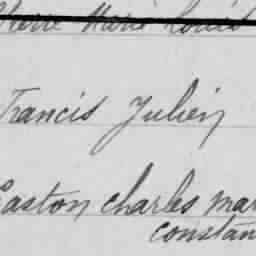 Marie Louis
Francis Julien
Gaston Charles mar
constan